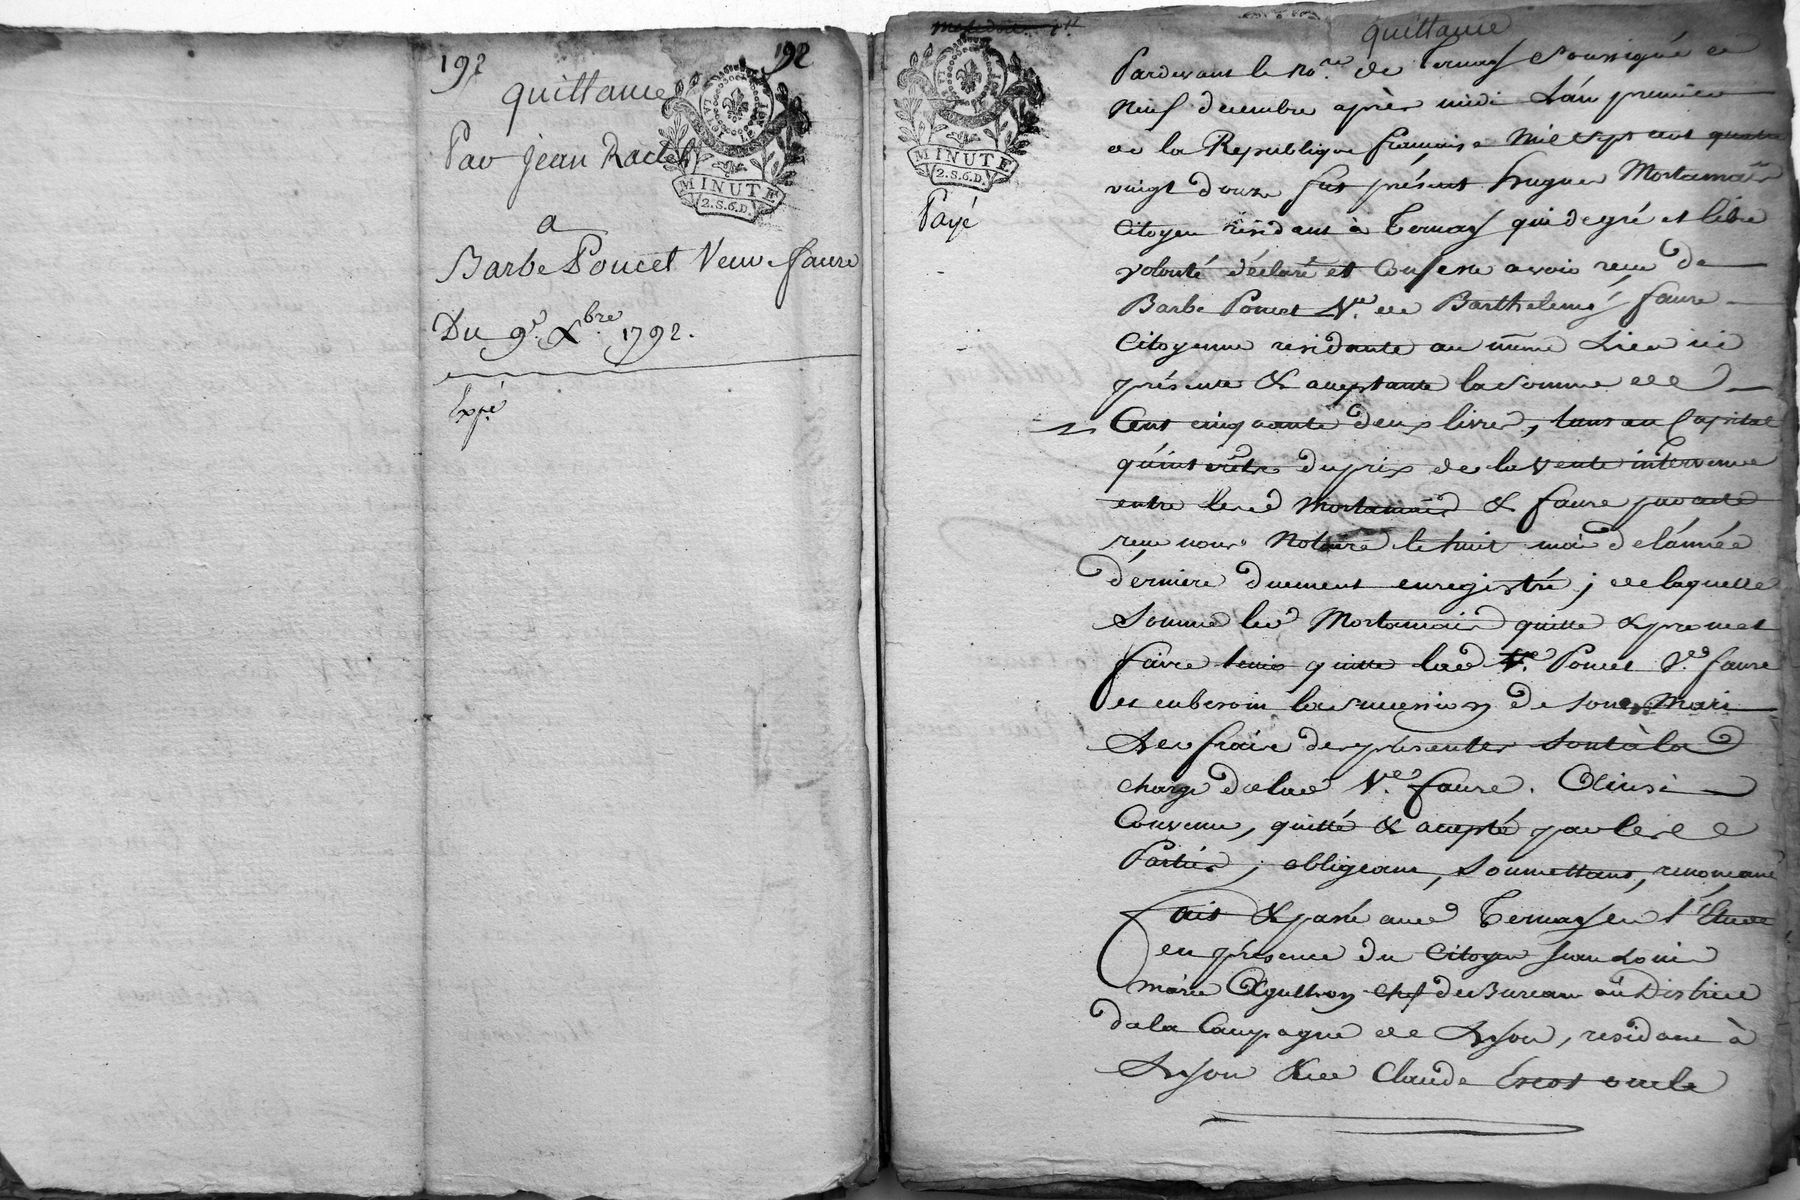 192
192
quittance
LA LOI
MINUTE
2.S.6.D.
Par jean
a
Barbe Poncet Veuve faure
Du 9.e Xbre 1792.
Expé
quittance
LA LOI
MINUTE
2.S.6.D.
Payé
Pardevant le no.re de Ternay Soussigné ce
neuf decembre après midi L'an premier
de la Republique francaise mil sept cent quatre
vingt douze fut présent hugues Mortamais
Citoyen résidant à Ternay qui de gré et libre
volonté déclare et Confesse avoir reçu de
Barbe Poncet V.ve de Barthelemy faure
Citoyenne residante au même Lieu ici
présente & aceptante la somme de
Cent cinquante deux livres, tant en Capital
qu'interêts du prix de la vente intervenue
entre lesd Mortamais & faure par acte
reçu nous Notaire le huit mai de l'année
dérniere duement enregistré ; de laquelle
Somme led Mortamais quitte & promet
faire tenir quitte lad Poncet V.ve faure
et en besoin la succession de son Mari
Les frais des présentes sont à la
charge de lad V.e faure. Ainsi
Convenu, quitté & acepté par lesd
Parties, obligeant, Soumettant, renonçant
fait & passé aud Ternay en l'Etude
en présence du Citoyen jean Louis
marie Aguthon chef de Bureau au District
de la Campagne de Lyon, residant à
Lyon & de Claude